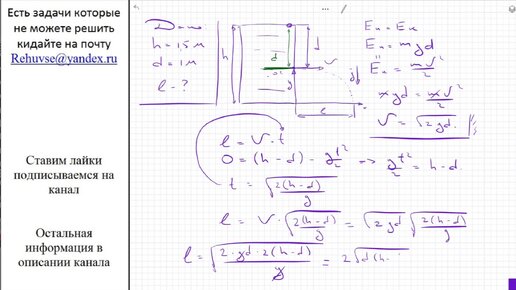 Есть задачи которые
не можете решить
кидайте на почту
Rehuvse@yandex.ru
Ставим лайки
подписываемся на
канал
Остальная
информация в
описании канала
Дано
h = 1,5 м
d = 1 м
l - ?
h
d
d
v
g
l
Eп = Eк
Eп = mgd
Eк = mv²/2
mgd = mv²/2
v = √2gd
l = v · t
0 = (h - d) - gt²/2 => gt²/2 = h - d
t = √(2(h-d)/g)
l = v · √(2(h-d)/g) = √2gd √(2(h-d)/g)
l = √(2·gd·2(h-d)/g) = 2√d(h-